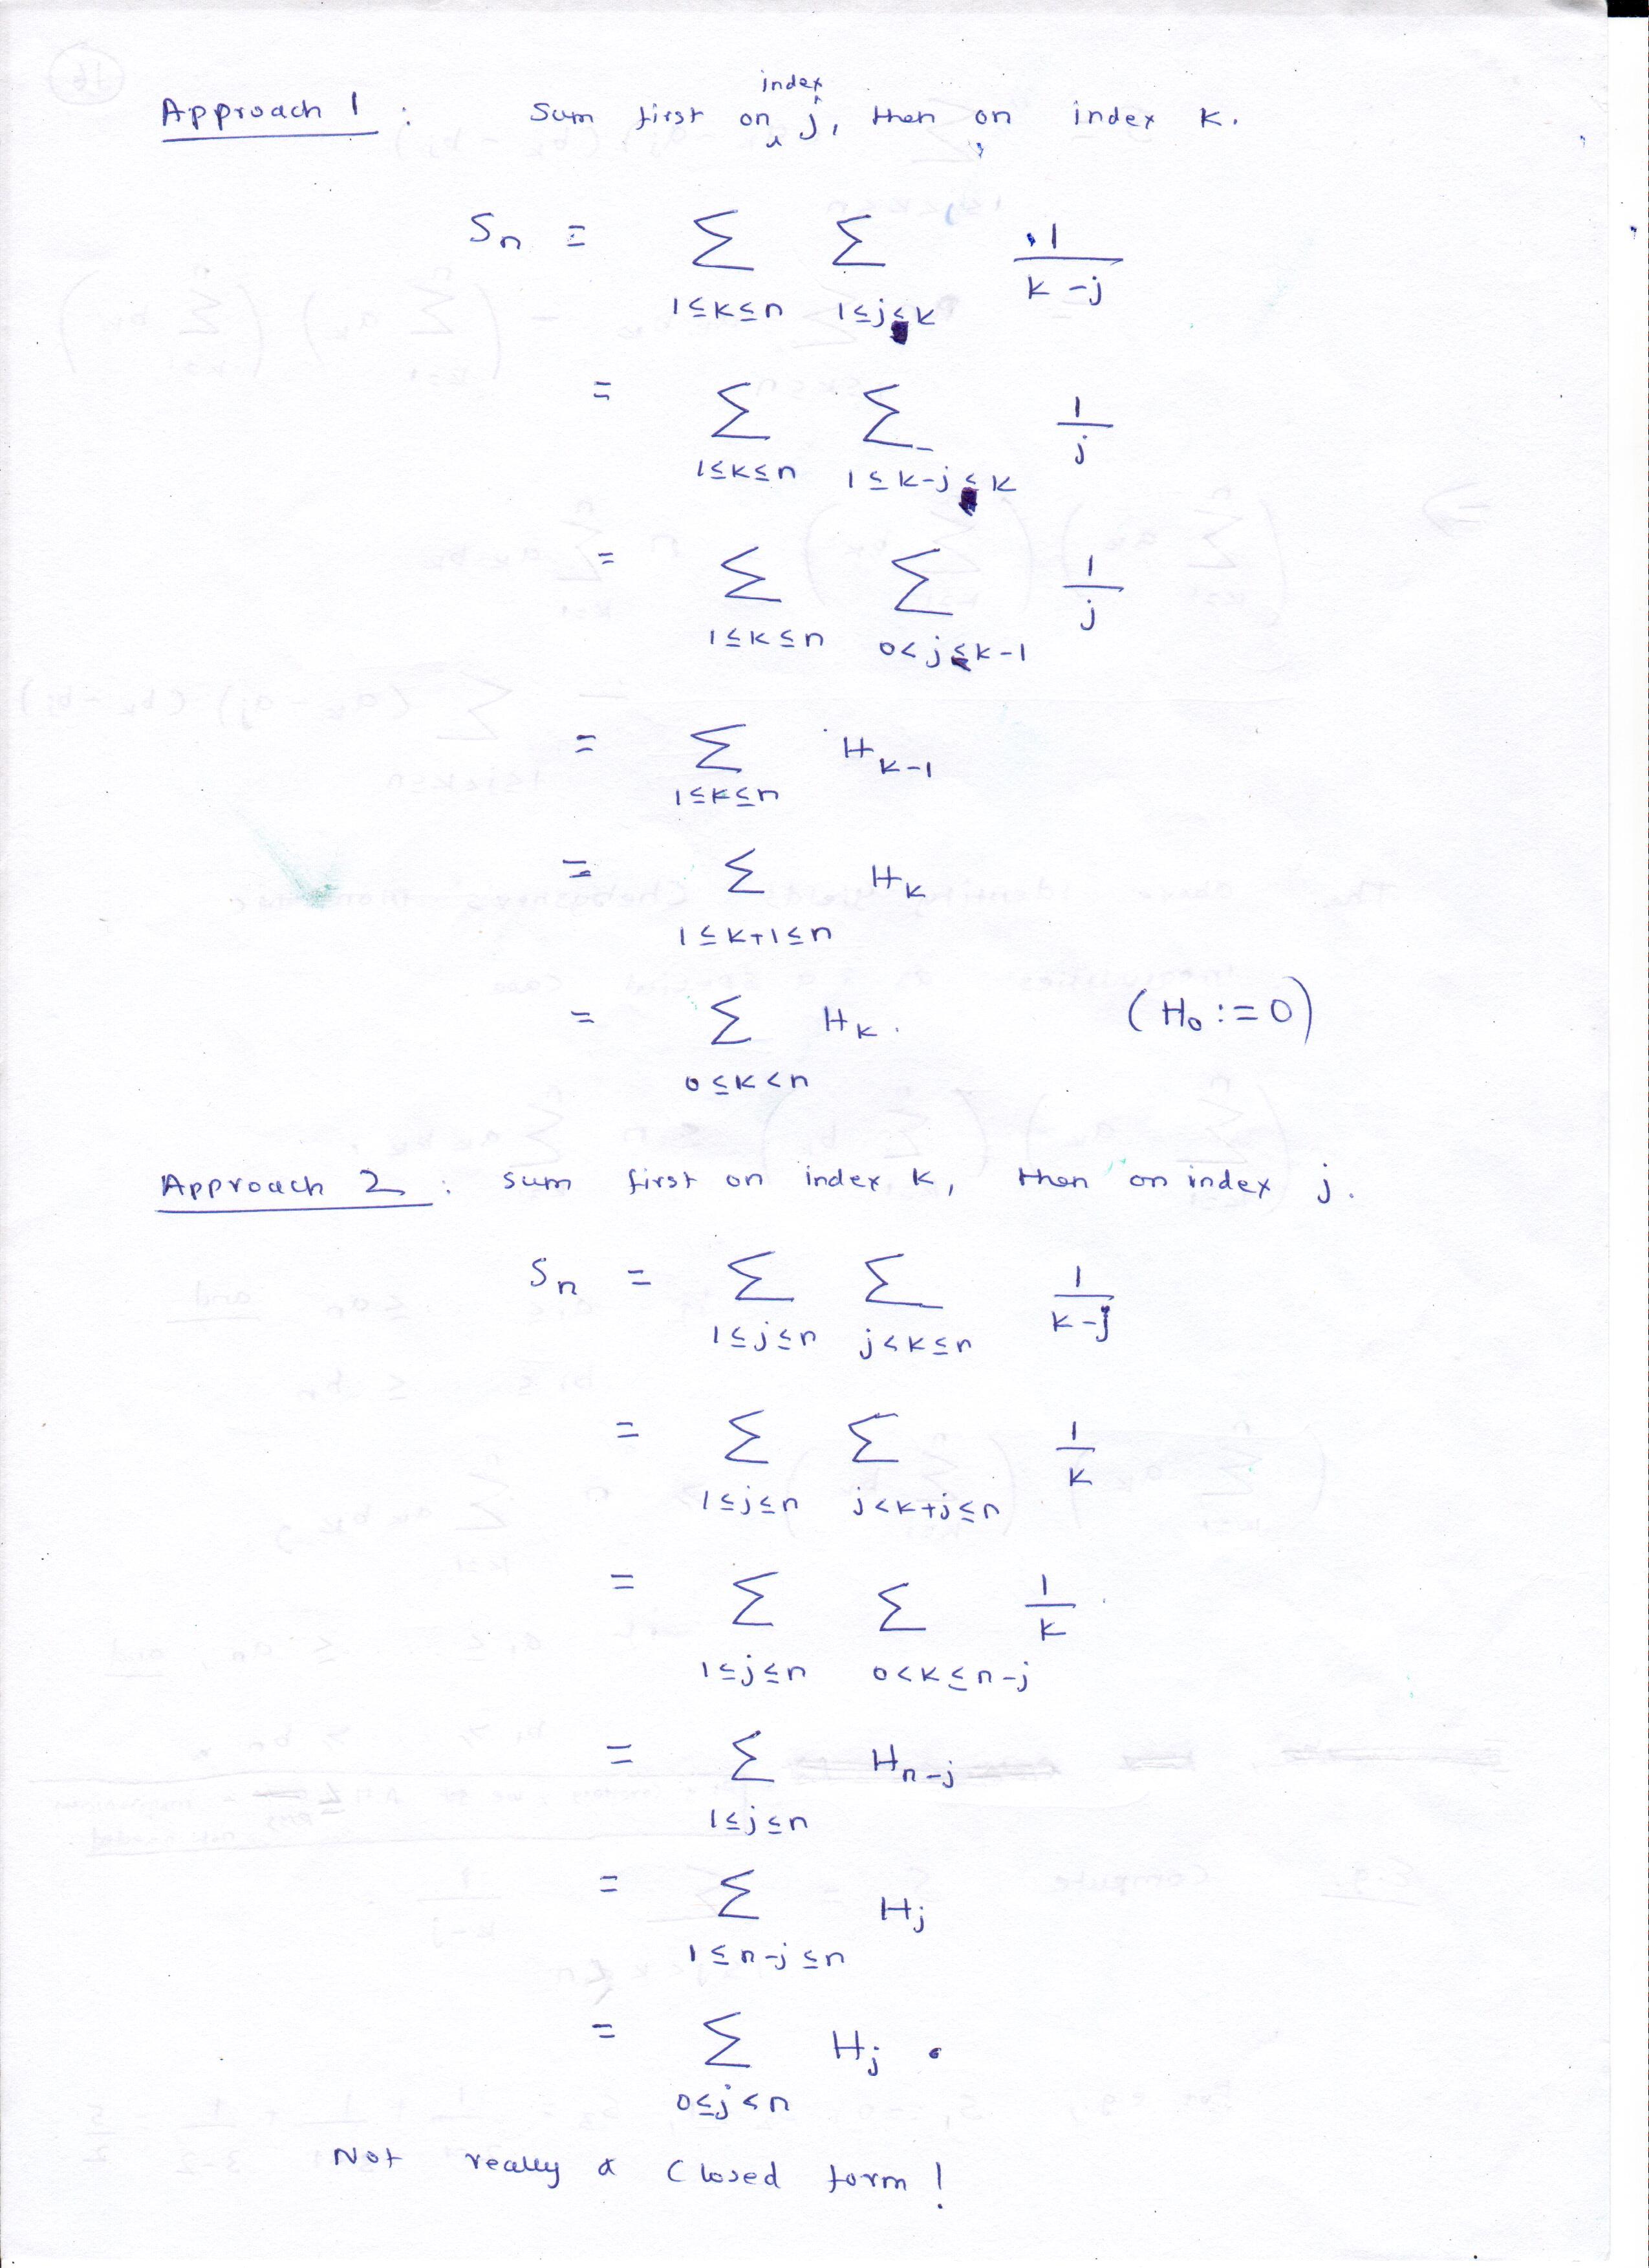 Approach 1 : Sum first on index j, then on index k.
Sₙ = Σ_{1≤k≤n} Σ_{1≤j<k} 1/(k-j)
= Σ_{1≤k≤n} Σ_{1≤k-j<k} 1/j
= Σ_{1≤k≤n} Σ_{0<j≤k-1} 1/j
= Σ_{1≤k≤n} H_{k-1}
= Σ_{1≤k+1≤n} H_k
= Σ_{0≤k<n} H_k . (H₀ := 0)
Approach 2 : sum first on index k, then on index j.
Sₙ = Σ_{1≤j≤n} Σ_{j<k≤n} 1/(k-j)
= Σ_{1≤j≤n} Σ_{j<k+j≤n} 1/k
= Σ_{1≤j≤n} Σ_{0<k≤n-j} 1/k
= Σ_{1≤j≤n} H_{n-j}
= Σ_{1≤n-j≤n} H_j
= Σ_{0≤j<n} H_j .
Not really a closed form !